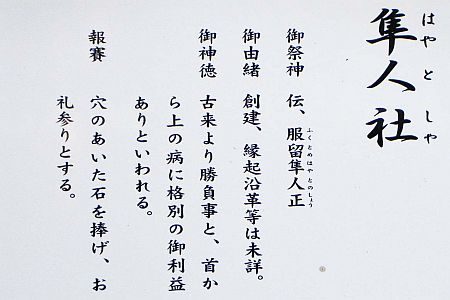 隼人社
はやとしゃ
御祭神 伝、服留隼人正
ふくとめはやとのしょう
御由緒 創建、縁起沿革等は未詳。
御神徳 古来より勝負事と、首か
ら上の病に格別の御利益
ありといわれる。
報賽 穴のあいた石を捧げ、お
礼参りとする。